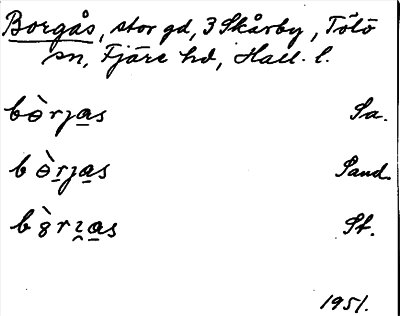 Borgås, stor gd, 3 Skårby, Tölö
sn, Fjäre hd, Hall. l.
bὲrjas Sa.
bὲrjas Sand.
b rias St.
1951.